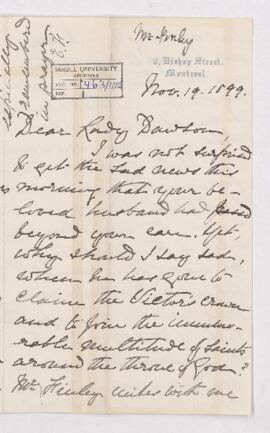 Mr Finley
2, Bishop Street.
Montreal.
Nov. 19. 1899.
McGILL UNIVERSITY
ARCHIVES
ACC. NO. 1463/
REF.
especially
remembered
in prayer
Dear Lady Dawson,
I was not surprised
to get the sad news this
morning that your be-
loved husband had passed
beyond your care. Yet,
why should I say sad,
when he has gone to
claim the Victor's crown
and to join the innume-
rable multitude of Saints
around the throne of God?
Mr. Finley unites with me